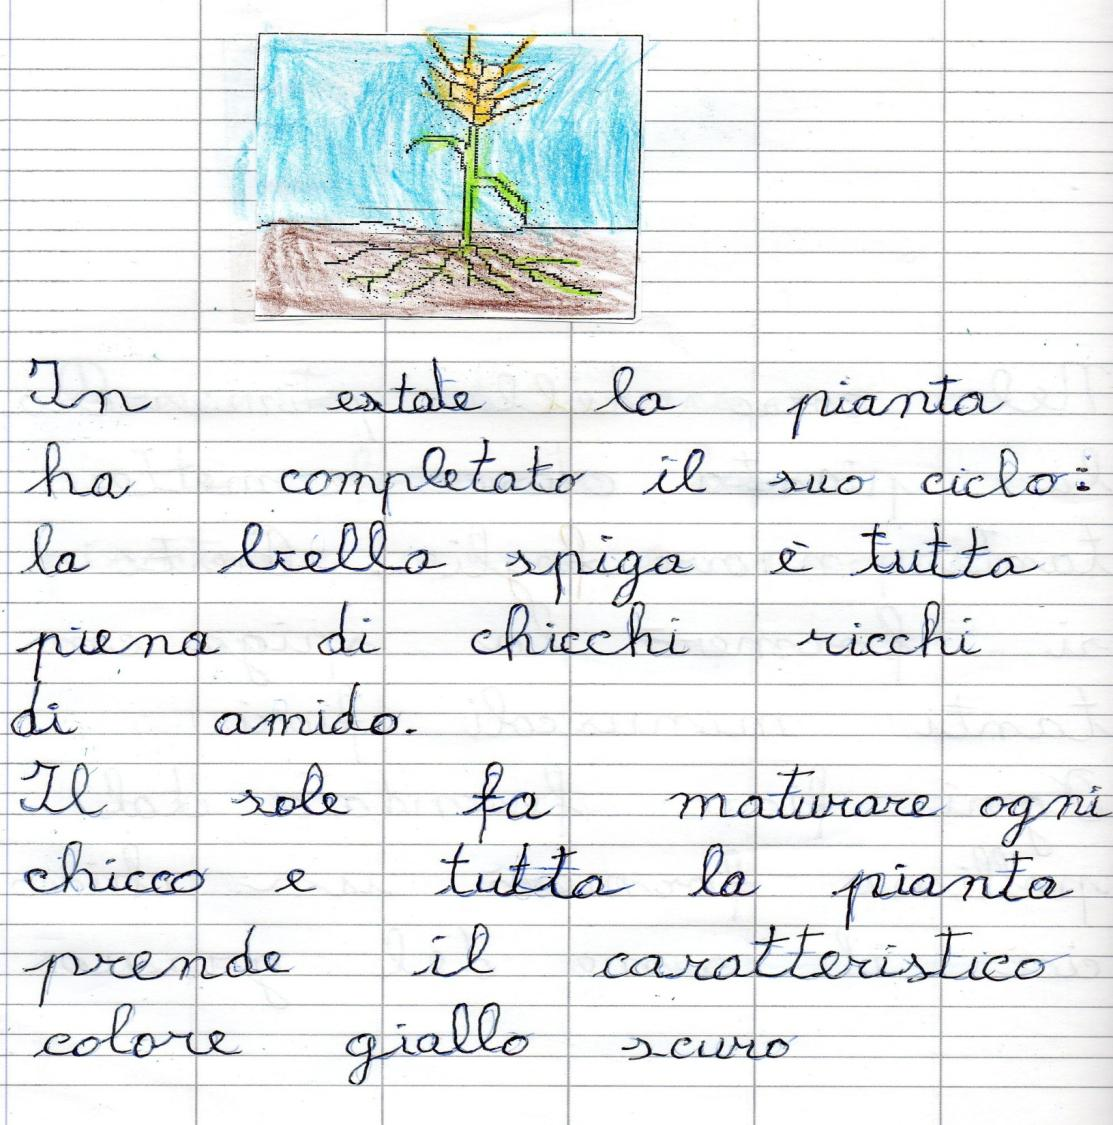 In estate la pianta
ha completato il suo ciclo:
la bella spiga è tutta
piena di chicchi ricchi
di amido.
Il sole fa maturare ogni
chicco e tutta la pianta
prende il caratteristico
colore giallo scuro